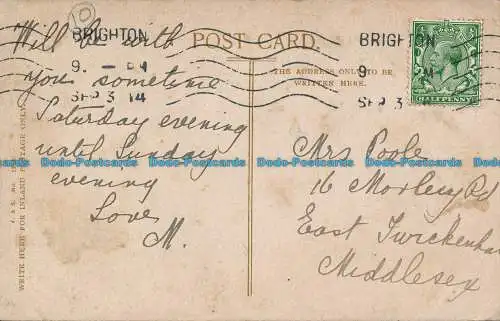 10
BRIGHTON
9. - PM
SEP 3 14
POST CARD.
THE ADDRESS ONLY TO BE
WRITTEN HERE.
BRIGHTON
9 PM
SEP 3
HALFPENNY
WRITE HERE FOR INLAND POSTAGE ONLY.
Will be with
you sometime
Saturday evening
until Sunday
evening
Love
M.
Mrs Poole
16 Morley Rd
East Twickenham
Middlesex
Dodo-Postcards Dodo-Postcards Dodo-Postcards Dodo-Postcards Dodo-Postcards
Dodo-Postcards Dodo-Postcards Dodo-Postcards Dodo-Postcards Dodo-Postcards